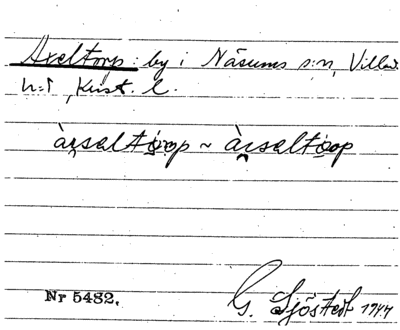 Axeltorp: by i Näsums s:n, Villands
h:d, Krist. l.
àɪ̯sɑltɷrp ~ àɪ̯sɑltɷrp
Nr 5482.
G. Sjöstedt 1944